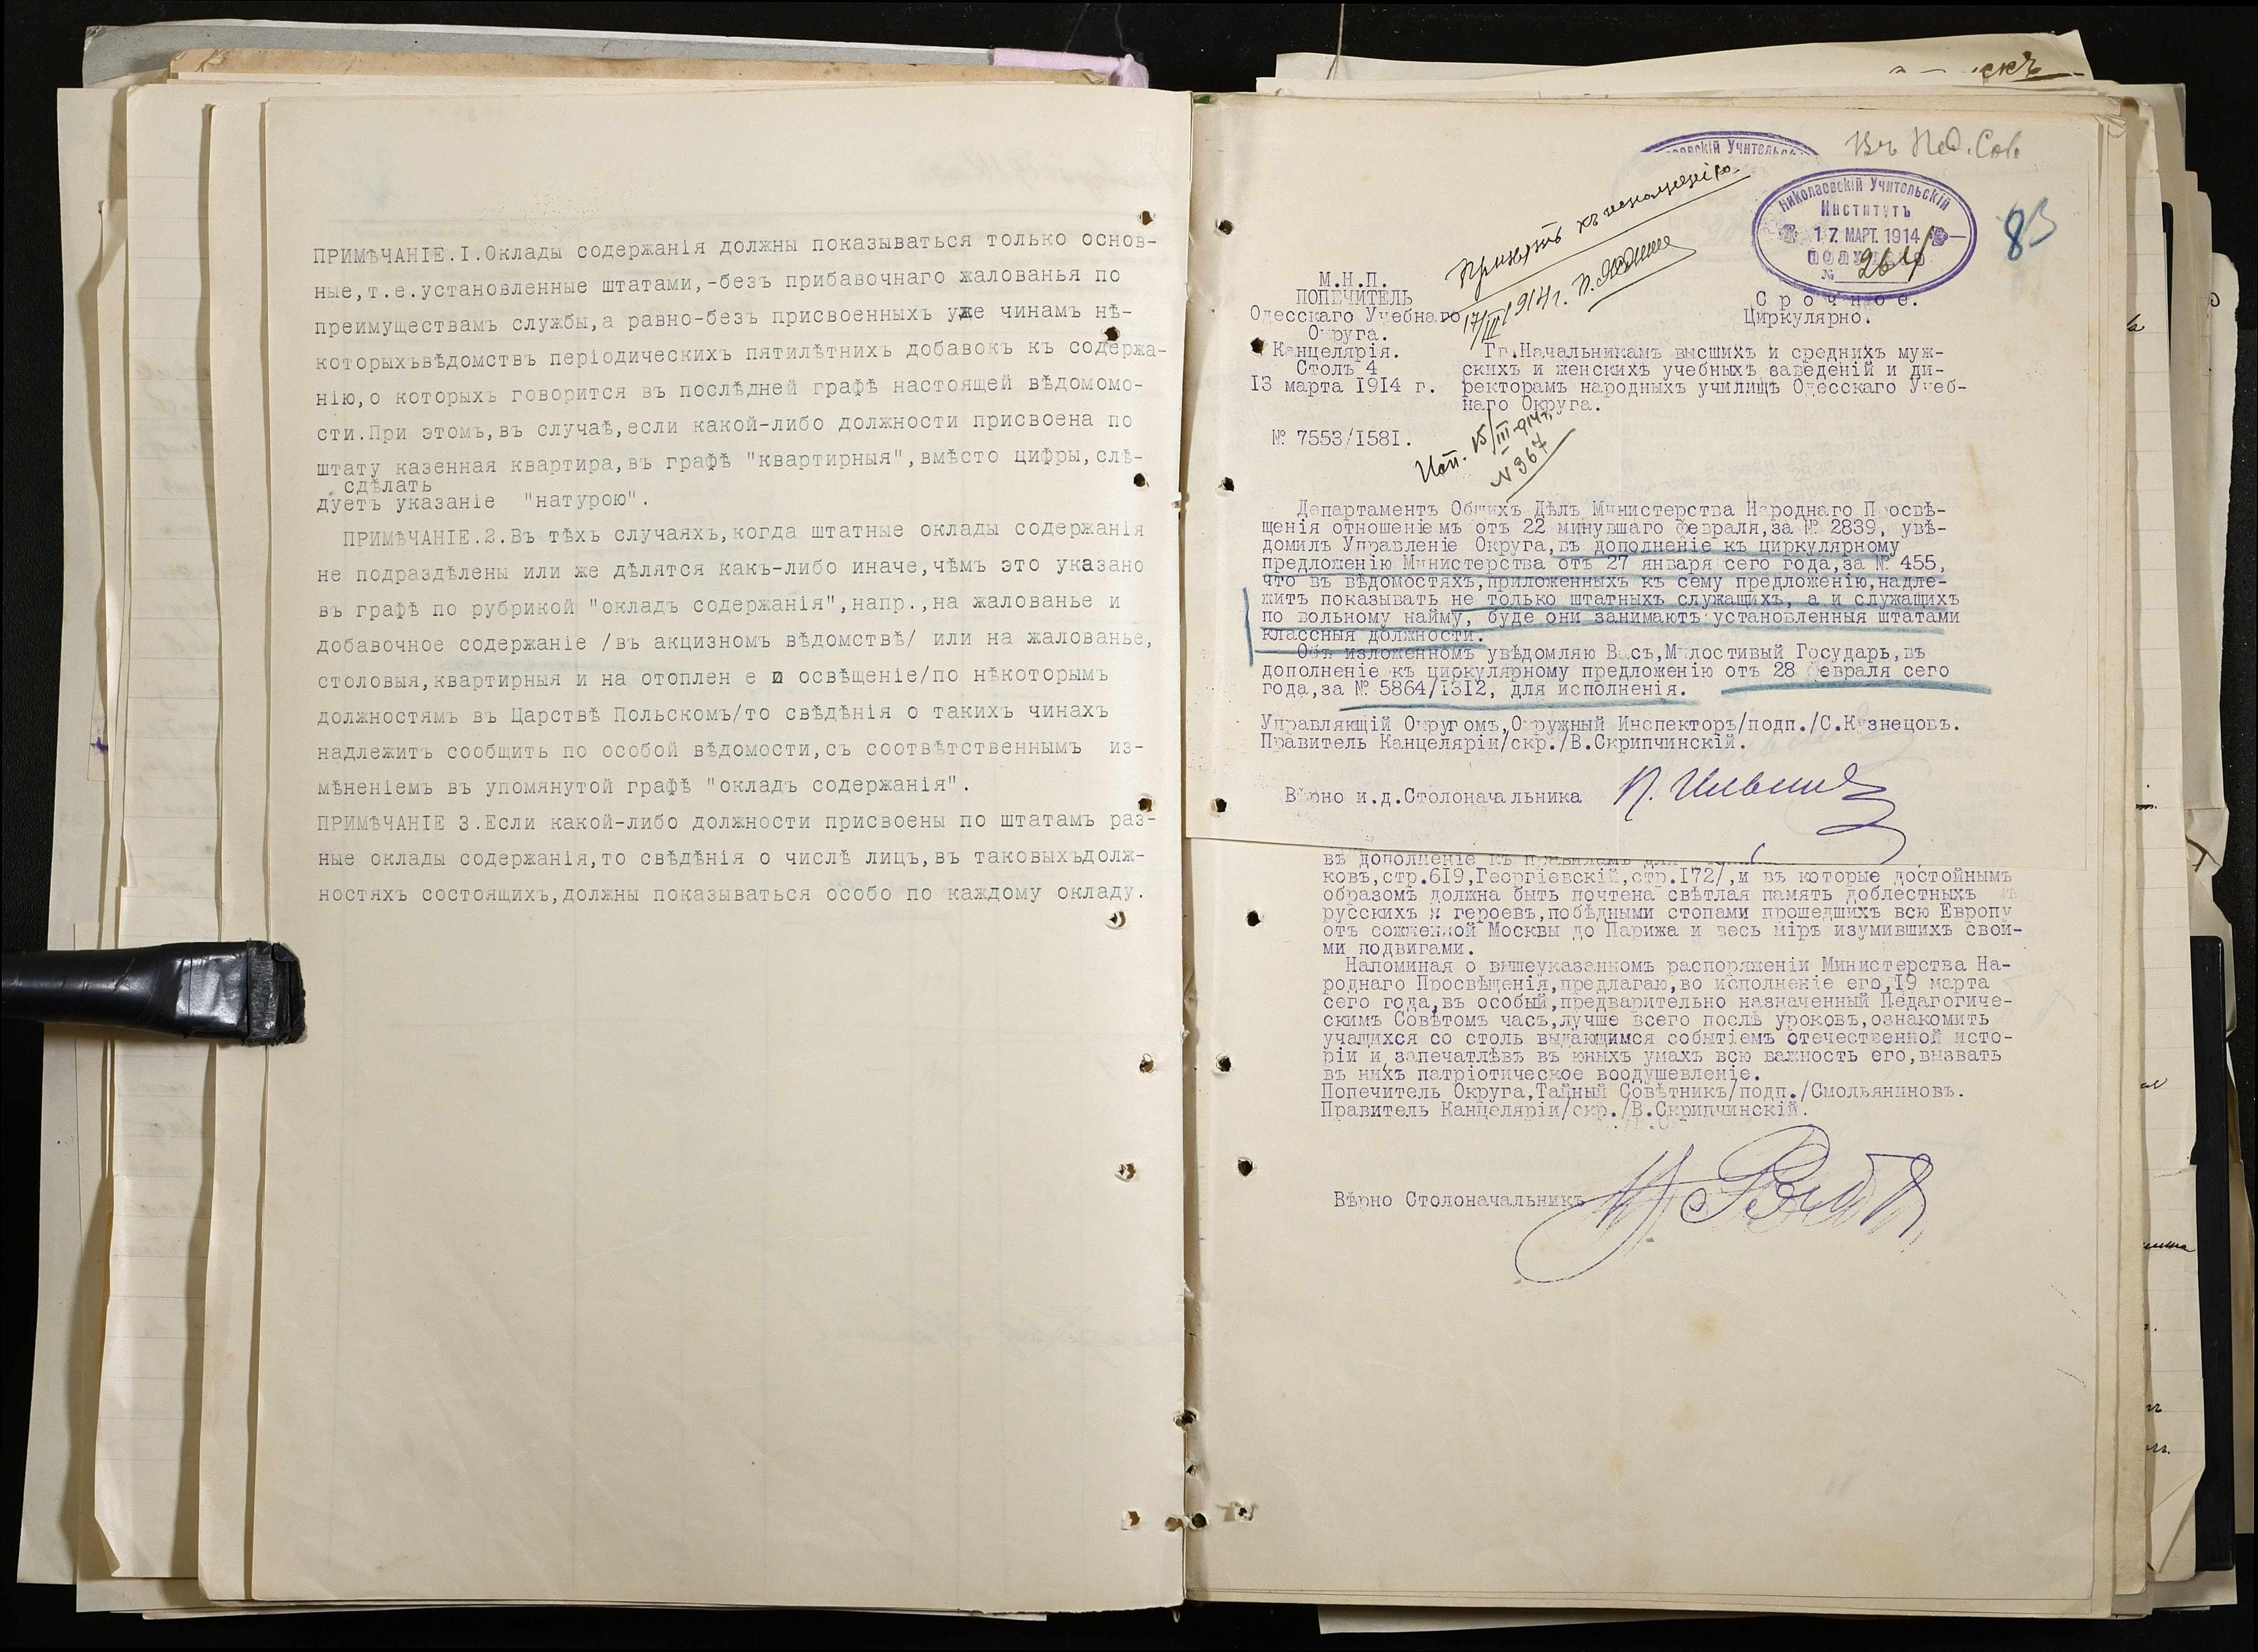 ПРИМѢЧАНІЕ.I.Оклады содержанія должны показываться только основ-
ные,т.е.установленные штатами,-безъ прибавочнаго жалованья по
преимуществамъ службы,а равно-безъ присвоенныхъ уже чинамъ нѣ-
которыхъвѣдомствъ періодическихъ пятилѣтнихъ добавокъ къ содержа-
нію,о которыхъ говорится въ послѣдней графѣ настоящей вѣдомомо-
сти.При этомъ,въ случаѣ,если какой-либо должности присвоена по
штату казенная квартира,въ графѣ "квартирныя",вмѣсто цифры,слѣ-
сдѣлать
дуетъ указаніе "натурою".
ПРИМѢЧАНІЕ.2.Въ тѣхъ случаяхъ,когда штатные оклады содержанія
не подраздѣлены или же дѣлятся какъ-либо иначе,чѣмъ это указано
въ графѣ по рубрикой "окладъ содержанія",напр.,на жалованье и
добавочное содержаніе /въ акцизномъ вѣдомствѣ/ или на жалованье,
столовыя,квартирныя и на отоплен е и освѣщеніе/по нѣкоторымъ
должностямъ въ Царствѣ Польскомъ/то свѣдѣнія о такихъ чинахъ
надлежитъ сообщить по особой вѣдомости,съ соотвѣтственнымъ из-
мѣненіемъ въ упомянутой графѣ "окладъ содержанія".
ПРИМѢЧАНІЕ 3.Если какой-либо должности присвоены по штатамъ раз-
ные оклады содержанія,то свѣдѣнія о числѣ лицъ,въ таковыхъдолж-
ностяхъ состоящихъ,должны показываться особо по каждому окладу.
Въ Пед. Сов
Николаевскій Учительскій
Институтъ
17 МАРТ. 1914
ПОЛУЧЕНО
№ 264
83
Принять къ исполненію.
17/III 1914 г.
М.Н.П.
ПОПЕЧИТЕЛЬ
Одесскаго Учебнаго
Округа.
Канцелярія.
Столъ 4
13 марта 1914 г.
№ 7553/1581.
Срочное.
Циркулярно.
Гг.Начальникамъ высшихъ и среднихъ муж-
скихъ и женскихъ учебныхъ заведеній и ди-
ректорамъ народныхъ училищъ Одесскаго Учеб-
наго Округа.
Исп. 15/III 914 г.
N 367
Департаментъ Общихъ Дѣлъ Министерства Народнаго Просвѣ-
щенія отношеніемъ отъ 22 минувшаго февраля,за № 2839, увѣ-
домилъ Управленіе Округа,въ дополненіе къ циркулярному
предложенію Министерства отъ 27 января сего года,за № 455,
что въ вѣдомостяхъ,приложенныхъ къ сему предложенію,надле-
житъ показывать не только штатныхъ служащихъ, а и служащихъ
по вольному найму, буде они занимаютъ установленныя штатами
классныя должности.
Объ изложенномъ увѣдомляю Васъ,Милостивый Государь,въ
дополненіе къ циркулярному предложенію отъ 28 февраля сего
года,за № 5864/1312, для исполненія.
Управляющій Округомъ,Окружный Инспекторъ/подп./С.Кузнецовъ.
Правитель Канцеляріи/скр./В.Скрипчинскій.
Вѣрно и.д.Столоначальника
въ дополненіе къ правиламъ для
ковъ,стр.619,Георгіевскій,стр.172/,и въ которые достойнымъ
образомъ должна быть почтена свѣтлая память доблестныхъ
русскихъ героевъ,побѣдными стопами прошедшихъ всю Европу
отъ сожженной Москвы до Парижа и весь міръ изумившихъ свои-
ми подвигами.
Напоминая о вышеуказанномъ распоряженіи Министерства На-
роднаго Просвѣщенія,предлагаю,во исполненіе его,19 марта
сего года,въ особый,предварительно назначенный Педагогиче-
скимъ Совѣтомъ часъ,лучше всего послѣ уроковъ,ознакомить
учащихся со столь выдающимся событіемъ отечественной исто-
ріи и,запечатлѣвъ въ юныхъ умахъ всю важность его,вызвать
въ нихъ патріотическое воодушевленіе.
Попечитель Округа,Тайный Совѣтникъ/подп./Смольяниновъ.
Правитель Канцеляріи/скр./В.Скрипчинскій.
Вѣрно Столоначальникъ